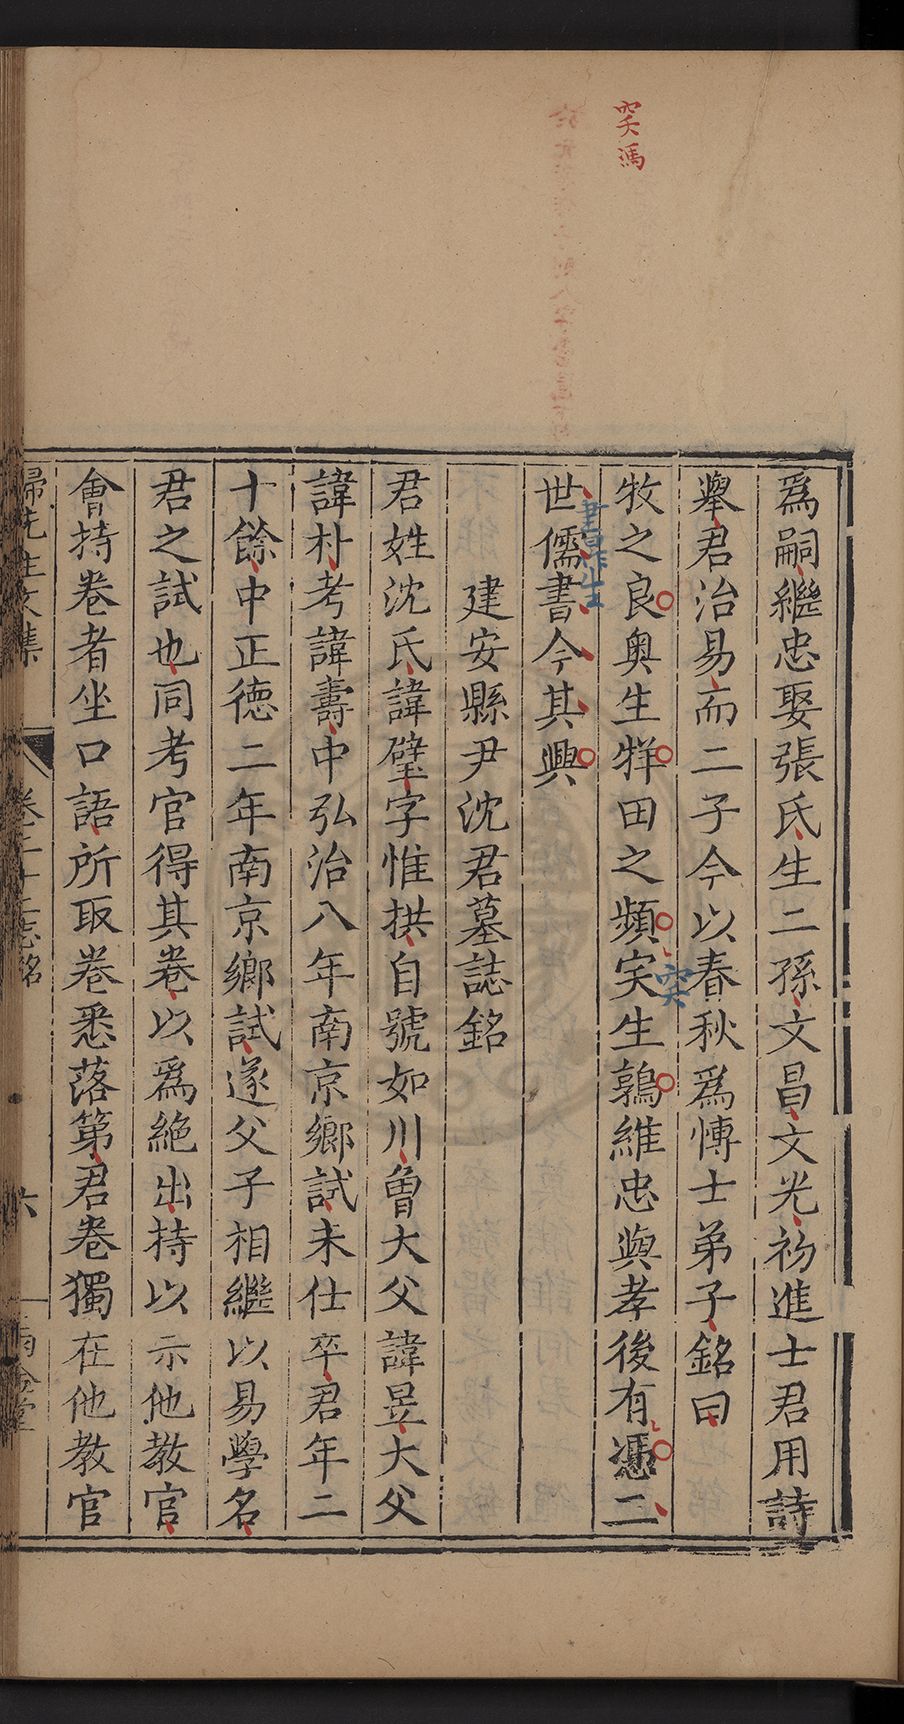 爲嗣繼忠娶張氏生二孫文昌文光初進士君用詩
舉君治易而二子今以春秋爲博士弟子銘曰
牧之良奧生牂田之頻宎生鶉維忠與孝後有馮二
世儒書今其興
建安縣尹沈君墓誌銘
君姓沈氏諱璧字惟拱自號如川曾大父諱昱大父
諱朴考諱壽中弘治八年南京鄉試未仕卒君年二
十餘中正德二年南京鄉試遂父子相繼以易學名
君之試也同考官得其卷以爲絶出持以示他教官
會持卷者坐口語所取卷悉落第君卷獨在他教官
卷二十 志銘
六
窔馮
窔